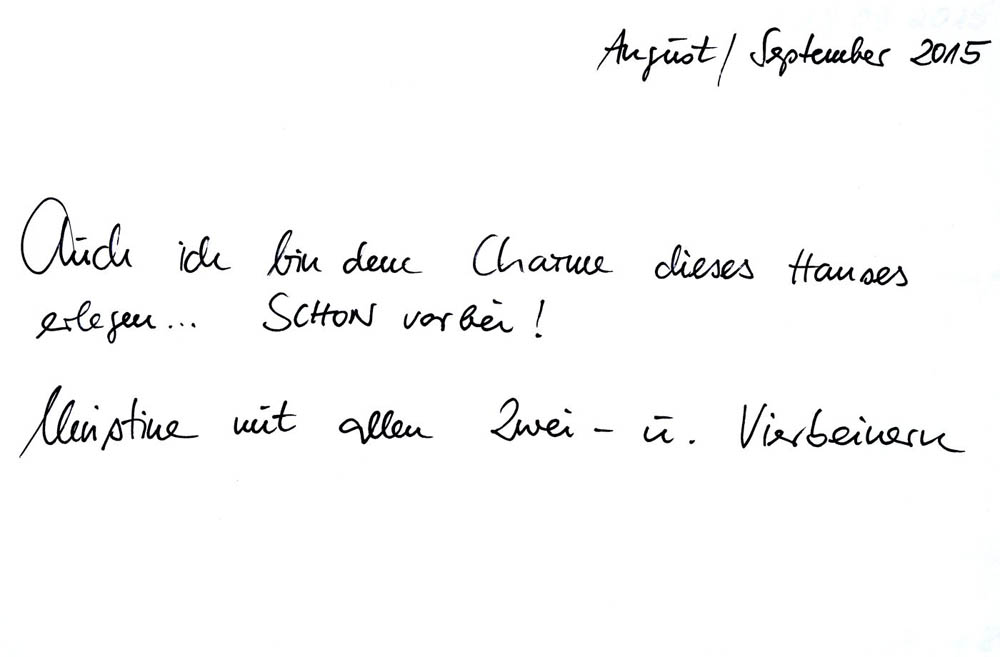 August / September 2015
Auch ich bin dem Charme dieses Hauses
erlegen... SCHON vorbei!
mit allen Zwei- u. Vierbeinern